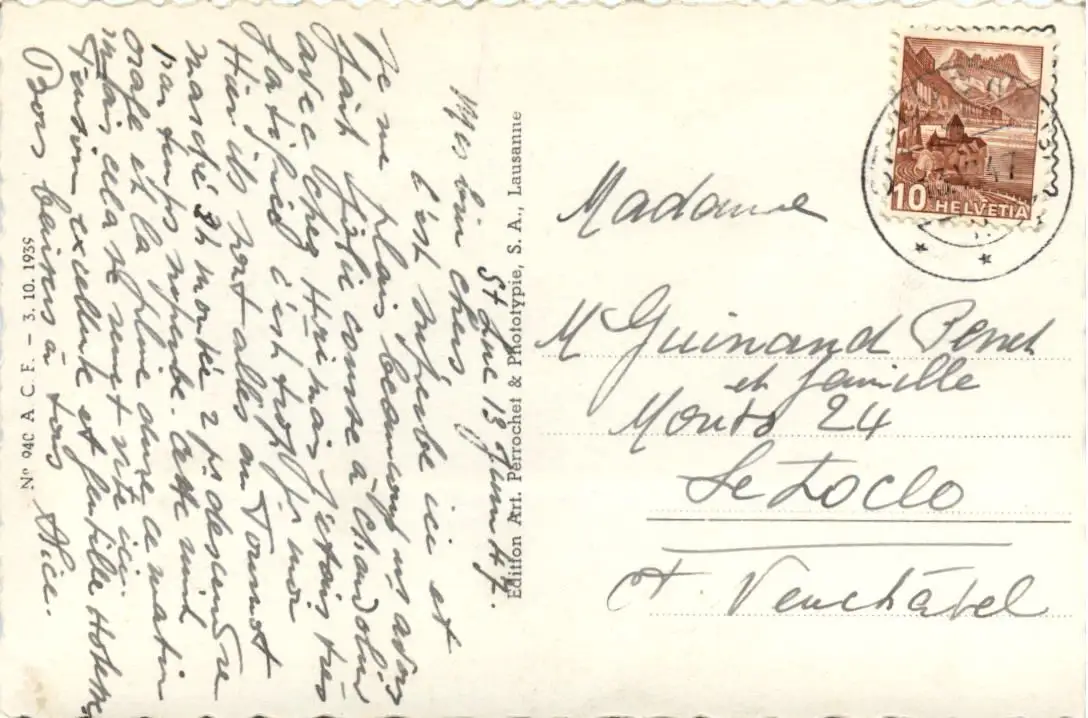 St Luc 13 Juin 47.
Mes bien chers
C'est superbe ici et
Je me plais beaucoup ns avons
fait jolie course à Chandolin
avec chez Henri mais j'étais très
fatiguée c'est trop pr moi
Hier ils sont allés au Tounot
marché 3h montée 2 hs descendre
par temps superbe. Cette nuit
orage et la pluie dure ce matin
mais cela se remet vite ici.
Pension excellente et gentille
Bons baisers à tous Alice.
No 940 A C F. – 3. 10. 1939
Edition Art. Perrochet & Phototypie, S. A., Lausanne
10 HELVETIA
Madame
M Guinand Perret
et famille
Monts 24
Le Locle
Ct. Neuchâtel